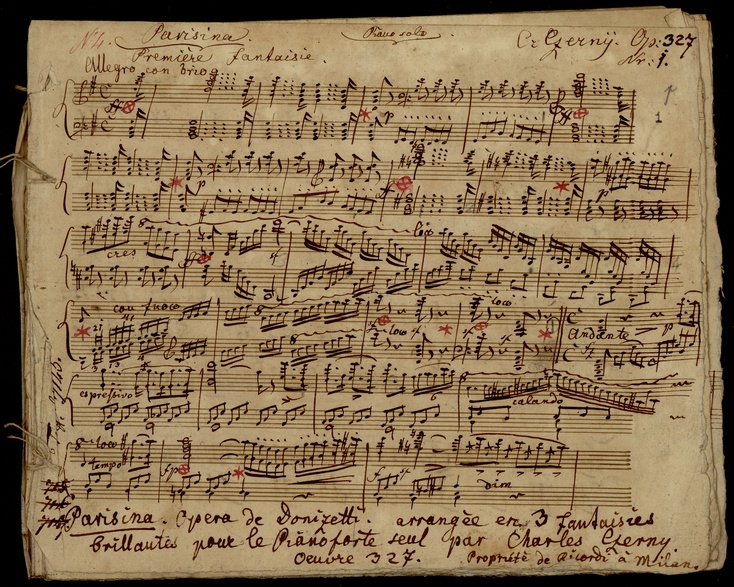 N 4. Parisina. Piano solo. Cz Czerny. Op: 327
Première fantaisie. Nr: 1.
Allegro con brio
1
ff p ff
p ff p
cres 8 ff loco
con fuoco 8 loco loco Andante p
espressivo 8 calando
8 loco
a tempo fp f dim
Parisina. Opera de Donizetti. arrangée en 3 fantaisies
brillantes pour le Pianoforte seul par Charles Czerny.
Oeuvre 327. Propriété de Ricordi à Milan.